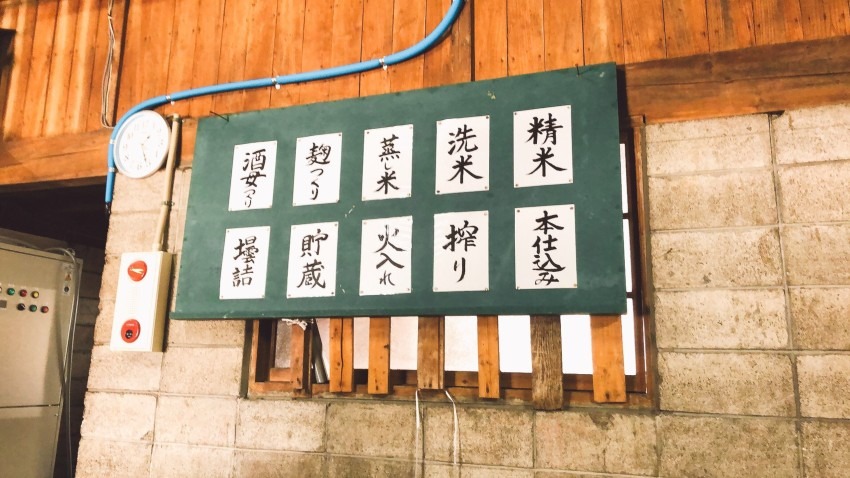 精米
洗米
蒸し米
麹つくり
酒母つくり
本仕込み
搾り
火入れ
貯蔵
壜詰